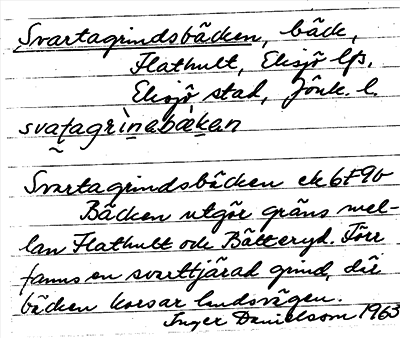 Svartagrindsbäcken, bäck,
Flathult, Eksjö lfs.
Eksjö stad, Jönk. l.
svaṭagrìnabækan
Svartagrindsbäcken ek 6f9b
Bäcken utgör gräns mel-
lan Flathult och Bätteryd. Förr
fanns en svarttjärad grind, där
bäcken korsar landsvägen.
Inger Danielsson 1963